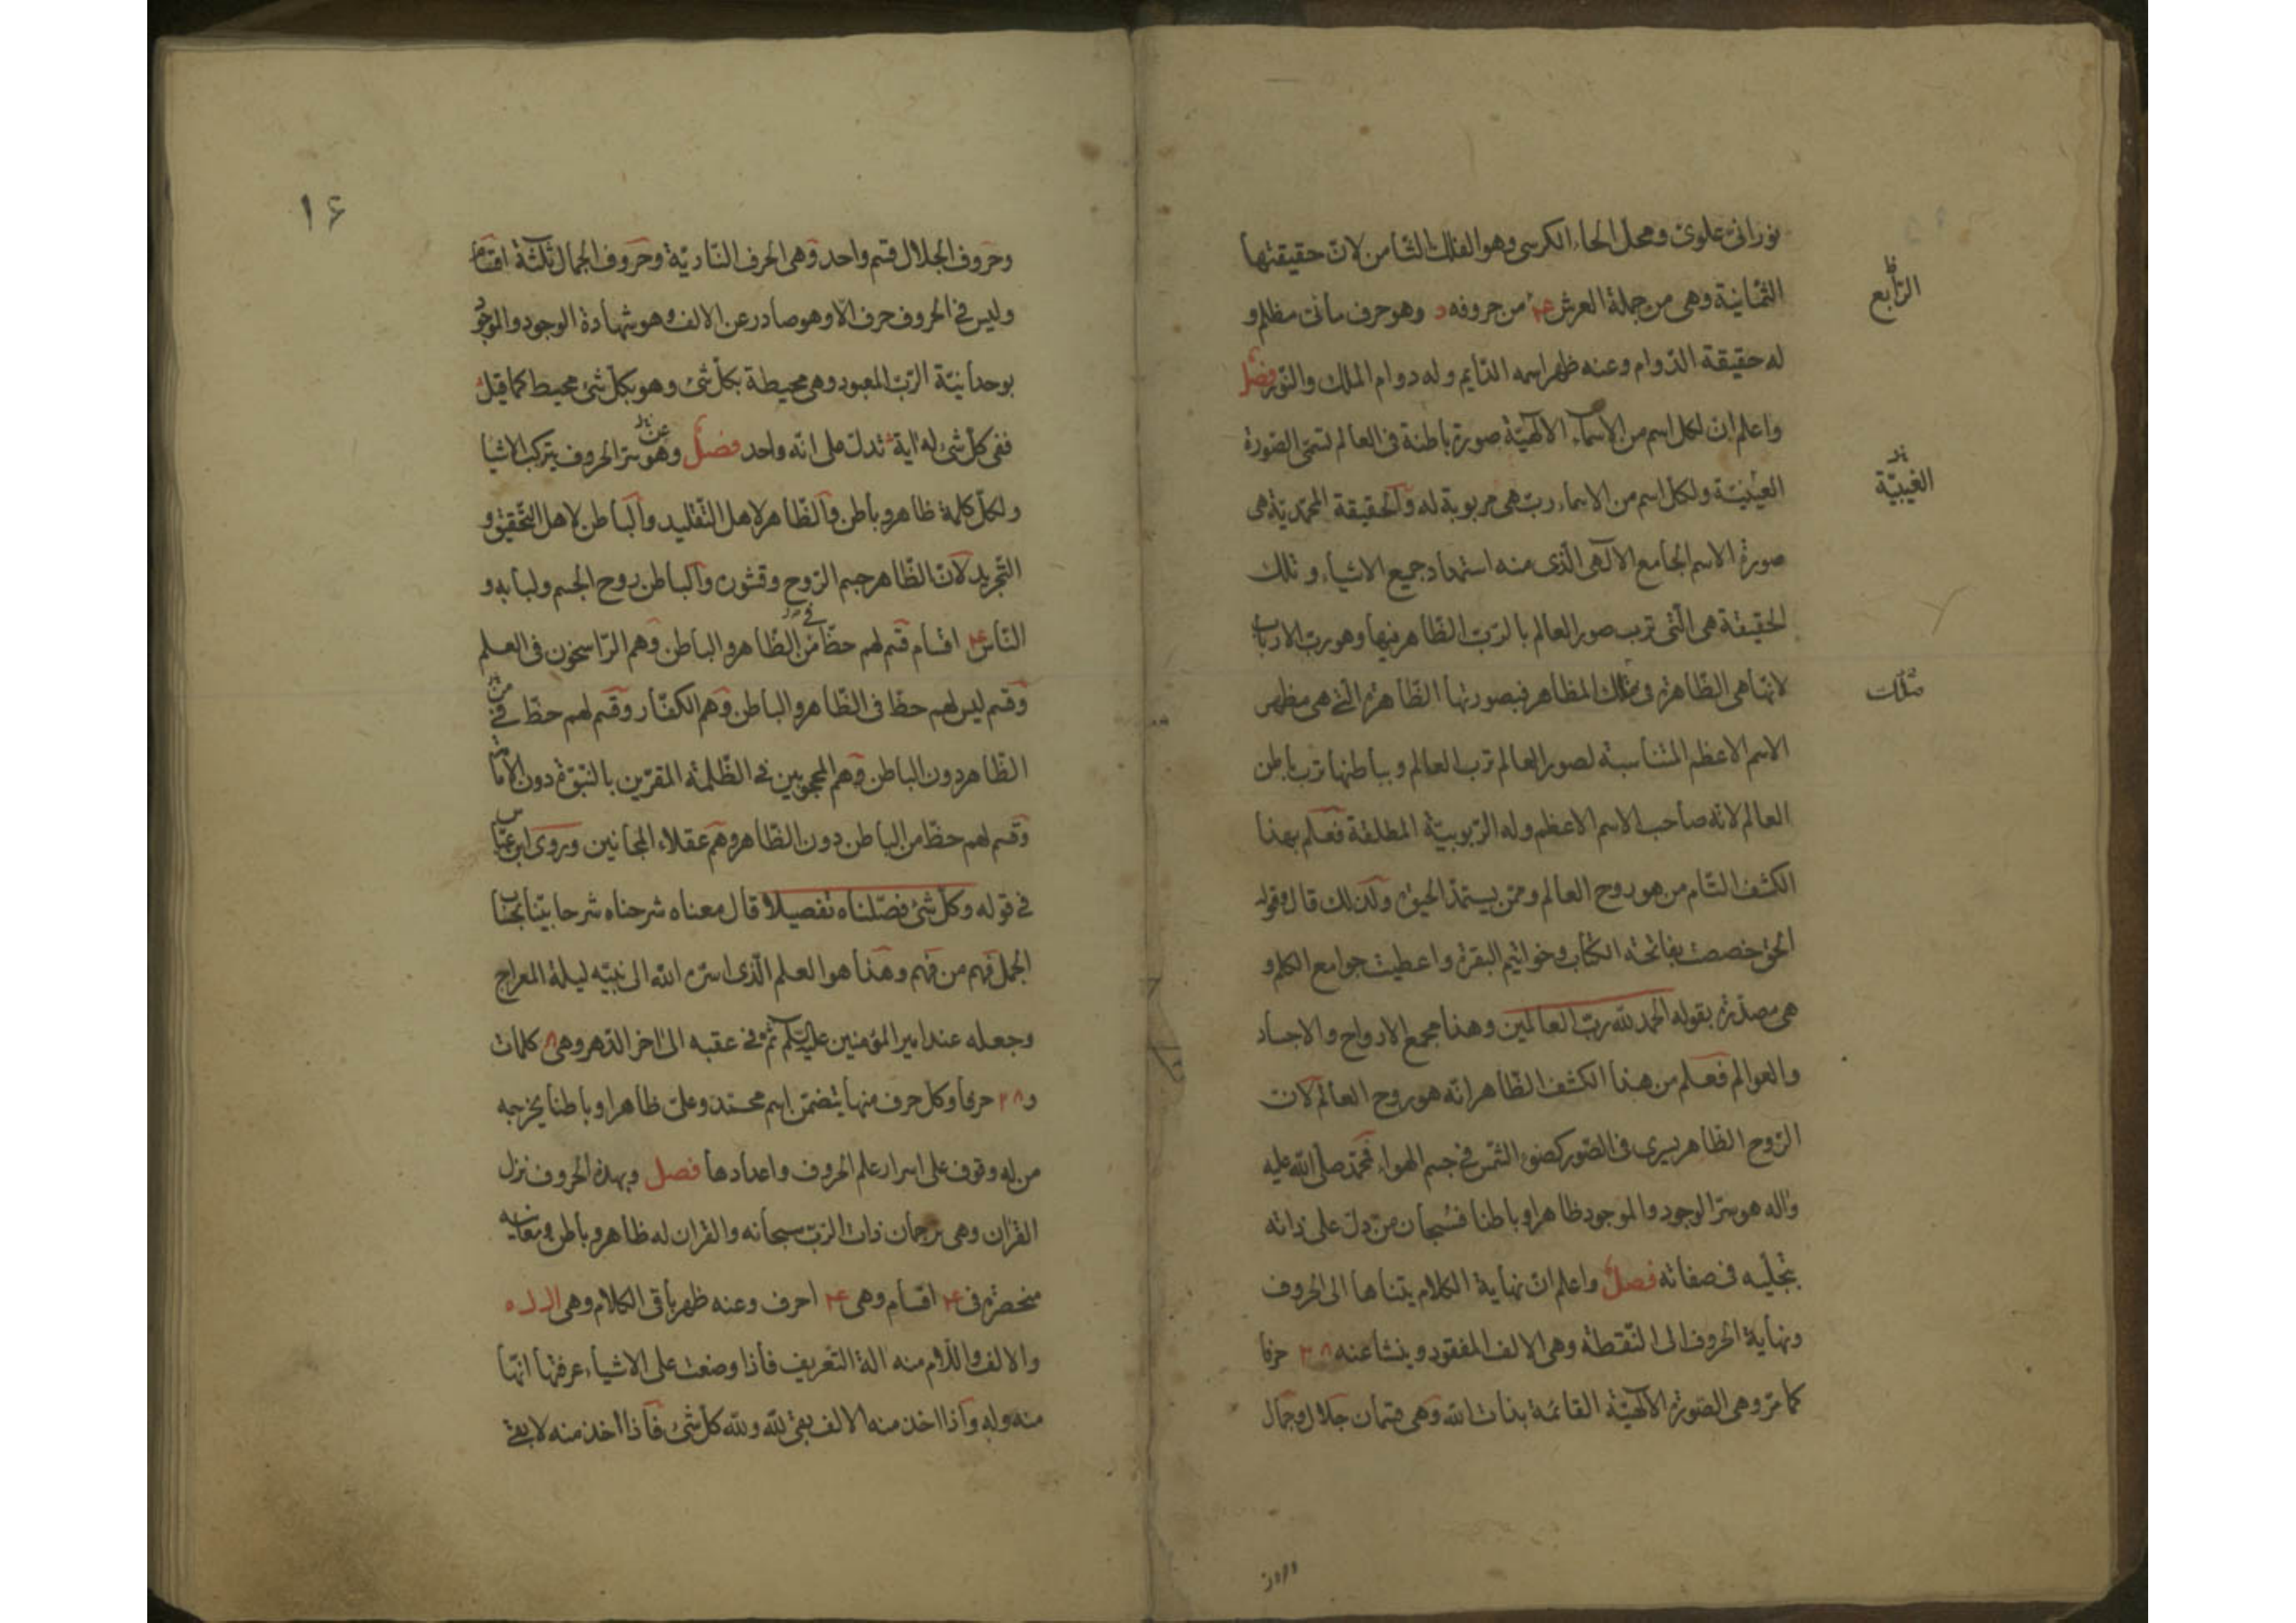 نورانی علوی و محل الحاء الکرسی وهو الفلک الثامن لان حقیقتها
الثمانیة وهی من جملة العرش ۴ من حروفه د وهو حرف مائی مظلم و
الرابع
له حقیقة الدوام وعنه ظهر اسمه الدایم وله دوام الملک والنور فصل
واعلم ان لکل اسم من الاسماء الالهیّة صورة باطنة فی العالم تسمی الصورة
العینیّة ولکل اسم من الاسماء ربّ هی مربوبة له والحقیقة المحمدیّة هی
الغیبیّة
صورة الاسم الجامع الالهی الّذی منه استمداد جمیع الاشیاء و تلک
الحقیقة هی الّتی ترب صور العالم بالربّ الظاهر فیها وهو ربّ الارباب
لانها هی الظاهرة فی تلک المظاهر فبصورتها الظاهرة الّتی هی مظهر
الاسم الاعظم المتناسبة لصور العالم ترب العالم و بباطنها ترب باطن
العالم لانه صاحب الاسم الاعظم وله الربوبیّة المطلقة فعلم بهذا
الکشف التام من هو روح العالم وممّن یستمدّ الحیوة ولذلک قال وقوله
الحق خصصت بفاتحة الکتاب وخواتیم البقرة واعطیت جوامع الکلم و
هی مصدّرة بقوله الحمد لله ربّ العالمین وهذا مجمع الارواح والاجساد
والعوالم فعلم من هذا الکشف الظاهر انّه هو روح العالم لان
الرّوح الظاهر یسری فی الصّور کضوء الشمس فی جسم الهواء فمحمّد صلی الله علیه
واله هو سرّ الوجود والموجود ظاهرا و باطنا فسبحان من دلّ علی ذاته
بتجلّیه فی صفاته فصل واعلم ان نهایة الکلام یتناها الی الحروف
ونهایة الحروف الی النّقطة وهی الالف المفقود و ینشأ عنه ۲۸ حرفا
کما مرّ وهی الصّورة الالهیّة القائمة بذات الله وهی قسمان جلال وجمال
وحروف
۱۶
وحروف الجلال قسم واحد وهی الحرف النّاریّة وحروف الجمال ثلثة اقسام
ولیس فی الحروف حرف الّا وهو صادر عن الالف وهو شهادة الوجود والموجود
بوحدانیّة الربّ المعبود وهی محیطة بکلّ شئ وهو بکلّ شئ محیط کما قیل
ففی کلّ شئ له ایة تدلّ علی انّه واحد فصل وهو سرّ الحروف یترکب الاشیا
عن
ولکلّ کلمة ظاهر و باطن والظاهر لاهل التّقلید والباطن لاهل التّحقیق و
التّجرید لان الظّاهر جسم الرّوح وقشوره والباطن روح الجسم ولبابه و
النّاس ۴ اقسام قسم لهم حظّ من الظّاهر والباطن وهم الرّاسخون فی العلم
وقسم لیس لهم حظّ فی الظّاهر والباطن وهم الکفّار وقسم لهم حظّ فی
الظّاهر دون الباطن وهم المحجوبین فی الظّلمة المقرّین بالنّبوّة دون الامامة
وقسم لهم حظّ من الباطن دون الظّاهر وهم عقلاء المجانین وروی ابن عبّاس
فی قوله وکلّ شئ فصّلناه تفصیلا قال معناه شرحناه شرحا بیّنا بحساب
الجمل فهم من فهم وهذا هو العلم الّذی اسرّه الله الی نبیّه لیلة المعراج
وجعله عند امیر المؤمنین علیه السلام ثم فی عقبه الی اخر الدّهر وهی ۸ کلمات
و ۲۸ حرفا وکل حرف منها یتضمّن اسم محمّد وعلی ظاهرا و باطنا یخرجه
من له وقوف علی اسرار علم الحروف واعدادها فصل وبهذه الحروف نزل
القرآن وهی ترجمان ذات الربّ سبحانه والقران له ظاهر و باطن ومعانیه
منحصرة فی ۴ اقسام وهی ۴ احرف وعنه ظهر باقی الکلام وهی ا ل ل ه
والالف واللّام منه الة التعریف فاذا وضعت علی الاشیاء عرفتها انّها
منه وله واذا اخذ منه الالف بقی لله ولله کلّ شئ فاذا اخذ منه لا بقی